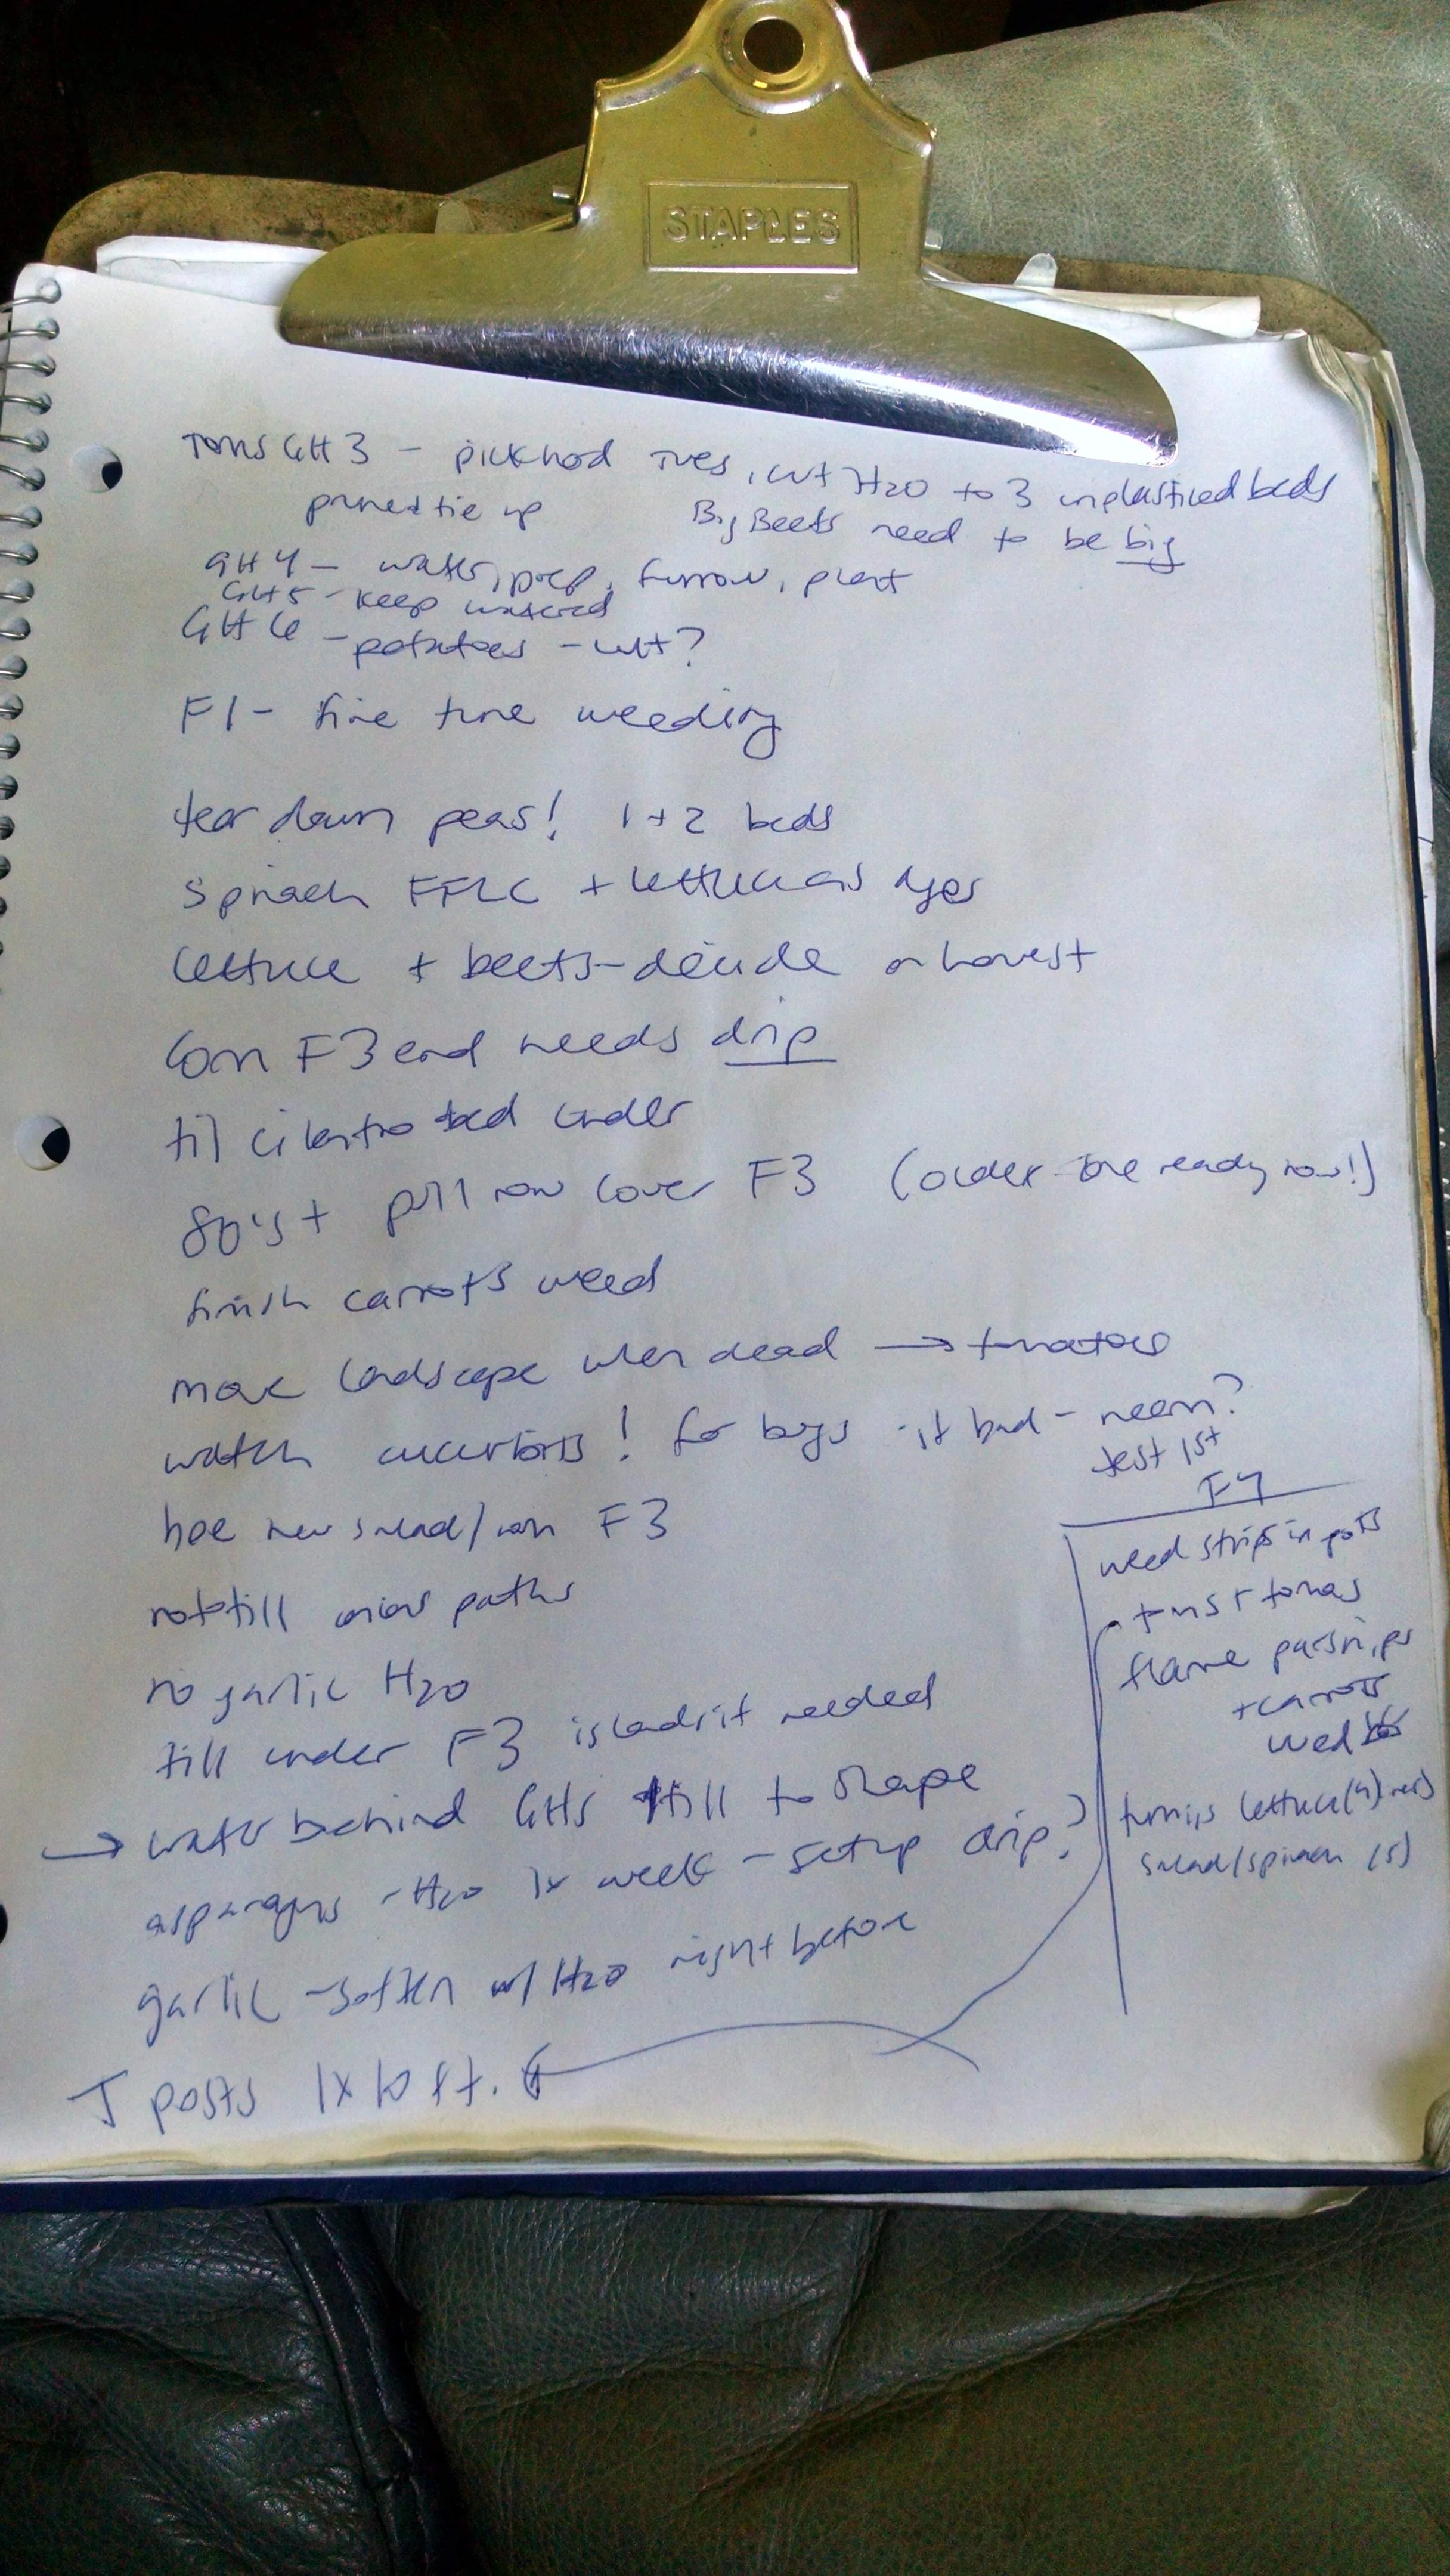 STAPLES
Toms GH 3 - pick hod Tues, cut H2O to 3 unplasticed beds
prune + tie up Big Beets need to be big
GH 4 - water, prep, furrow, plant
GH 5 - keep watered
GH 6 - potatoes - cut?
F1 - fine tune weeding
tear down peas! 1+2 beds
Spinach + lettuce as
lettuce + beets - decide on harvest
Corn F3 end needs drip
til cilantro bed under
80's + pull row cover F3 (older one ready now!)
finish carrots weed
move landscape when dead → tomatoes
watch cucurbits! for bugs - if bad - neem?
test 1st
hoe new salad/corn F3
rototill onions paths
no garlic H2O
till under F3 is needed
→ water behind GHs till to shape
asparagus - H2O 1x week - setup drip?
garlic - soften w/ H2O right before
T posts 1x10 ft.
F4
weed strips in
tomas
flame parsnips
+ carrots
wed
turnips lettuce (4)
salad/spinach (5)